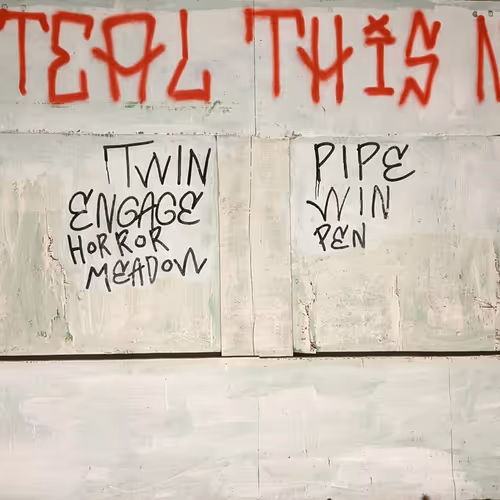 TEAL THIS
TWIN
ENGAGE
HORROR
MEADOW
PIPE
WIN
PEN